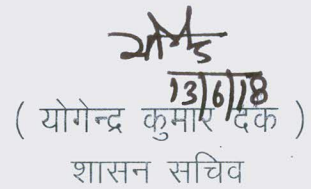 13/6/18
( योगेन्द्र कुमार दक )
शासन सचिव